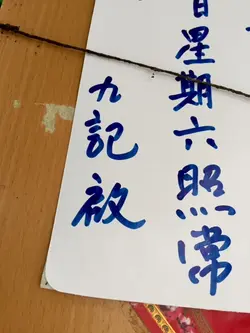 星期六照常
九記啟